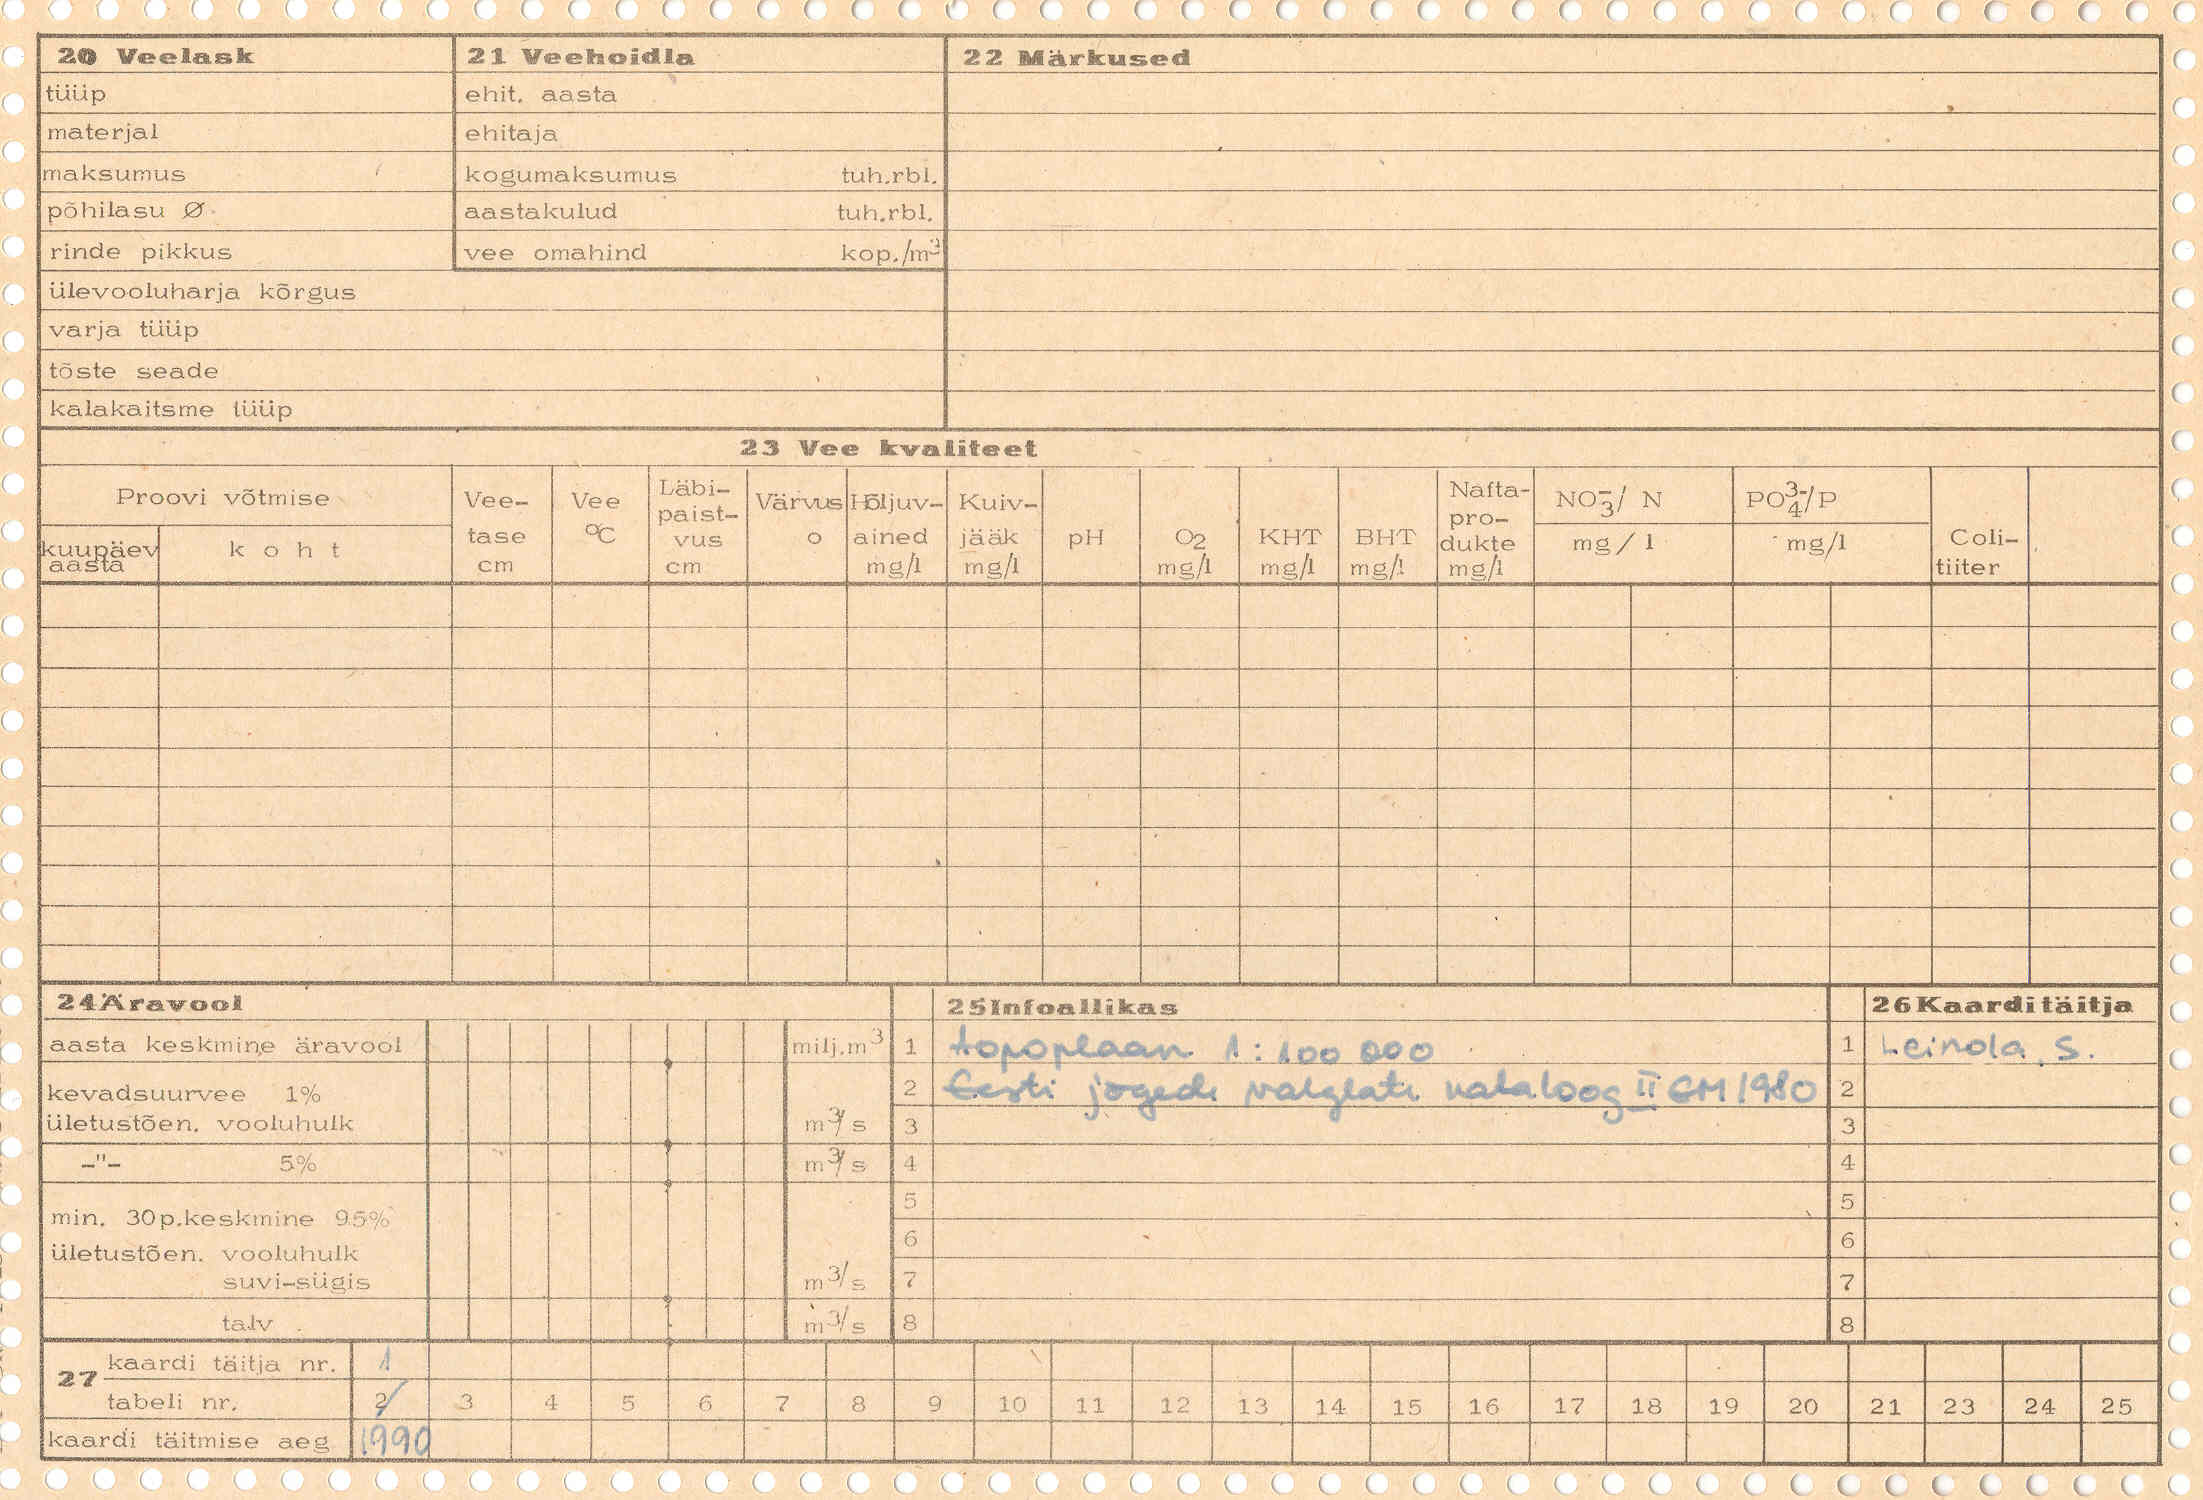 20 Veelask
tüüp
materjal
maksumus
põhilasu Ø
rinde pikkus
ülevooluharja kõrgus
varja tüüp
tõste seade
kalakaitsme tüüp
21 Veehoidla
ehit. aasta
ehitaja
kogumaksumus tuh.rbl.
aastakulud tuh.rbl.
vee omahind kop./m³
22 Märkused
23 Vee kvaliteet
Proovi võtmise
kuupäev
aasta
koht
Vee-
tase
cm
Vee
°C
Läbi-
paist-
vus
cm
Värvus
o
Hõljuv-
ained
mg/l
Kuiv-
jääk
mg/l
pH
O2
mg/l
KHT
mg/l
BHT
mg/l
Nafta-
pro-
dukte
mg/l
NO₃⁻/ N
mg/l
PO₄³⁻/P
mg/l
Coli-
tiiter
24 Äravool
aasta keskmine äravool milj.m³
kevadsuurvee 1%
ületustõen. vooluhulk m³/s
-"- 5% m³/s
min. 30p.keskmine 95%
ületustõen. vooluhulk
suvi-sügis m³/s
talv m³/s
25 Infoallikas
1 topoplaan 1:100 000
2 Eesti jõgede valglate kataloog II EM 1980
3
4
5
6
7
8
26 Kaarditäitja
1 Leinola, S.
2
3
4
5
6
7
8
27 kaardi täitja nr. 1
tabeli nr. 2 3 4 5 6 7 8 9 10 11 12 13 14 15 16 17 18 19 20 21 23 24 25
kaardi täitmise aeg 1990